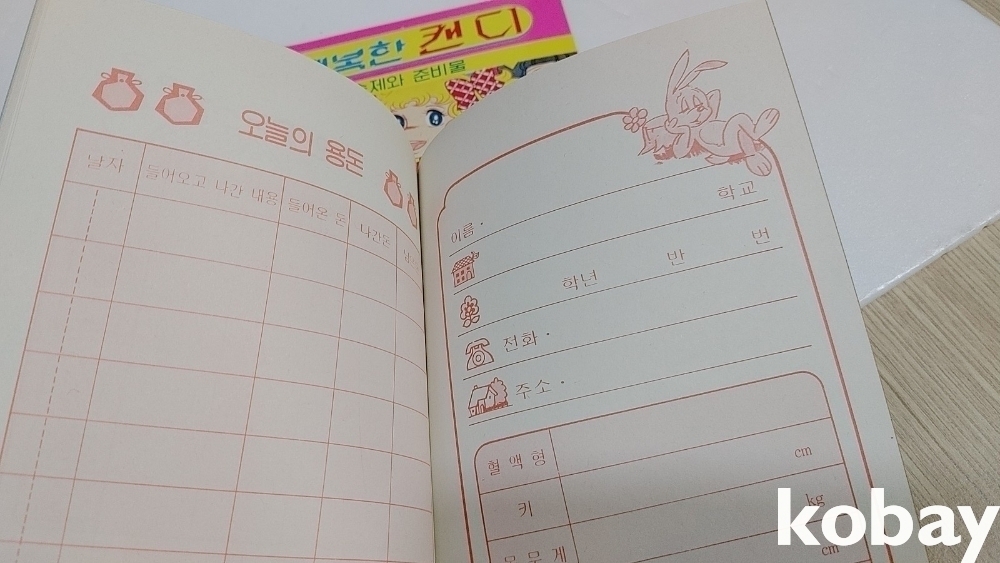 캔디
숙제와 준비물
오늘의 용돈
날자 들어오고 나간 내용 들어온 돈 나간돈
이름·
학교
학년 반 번
전화·
주소·
혈액형 cm
키 kg
몸무게 cm
kobay